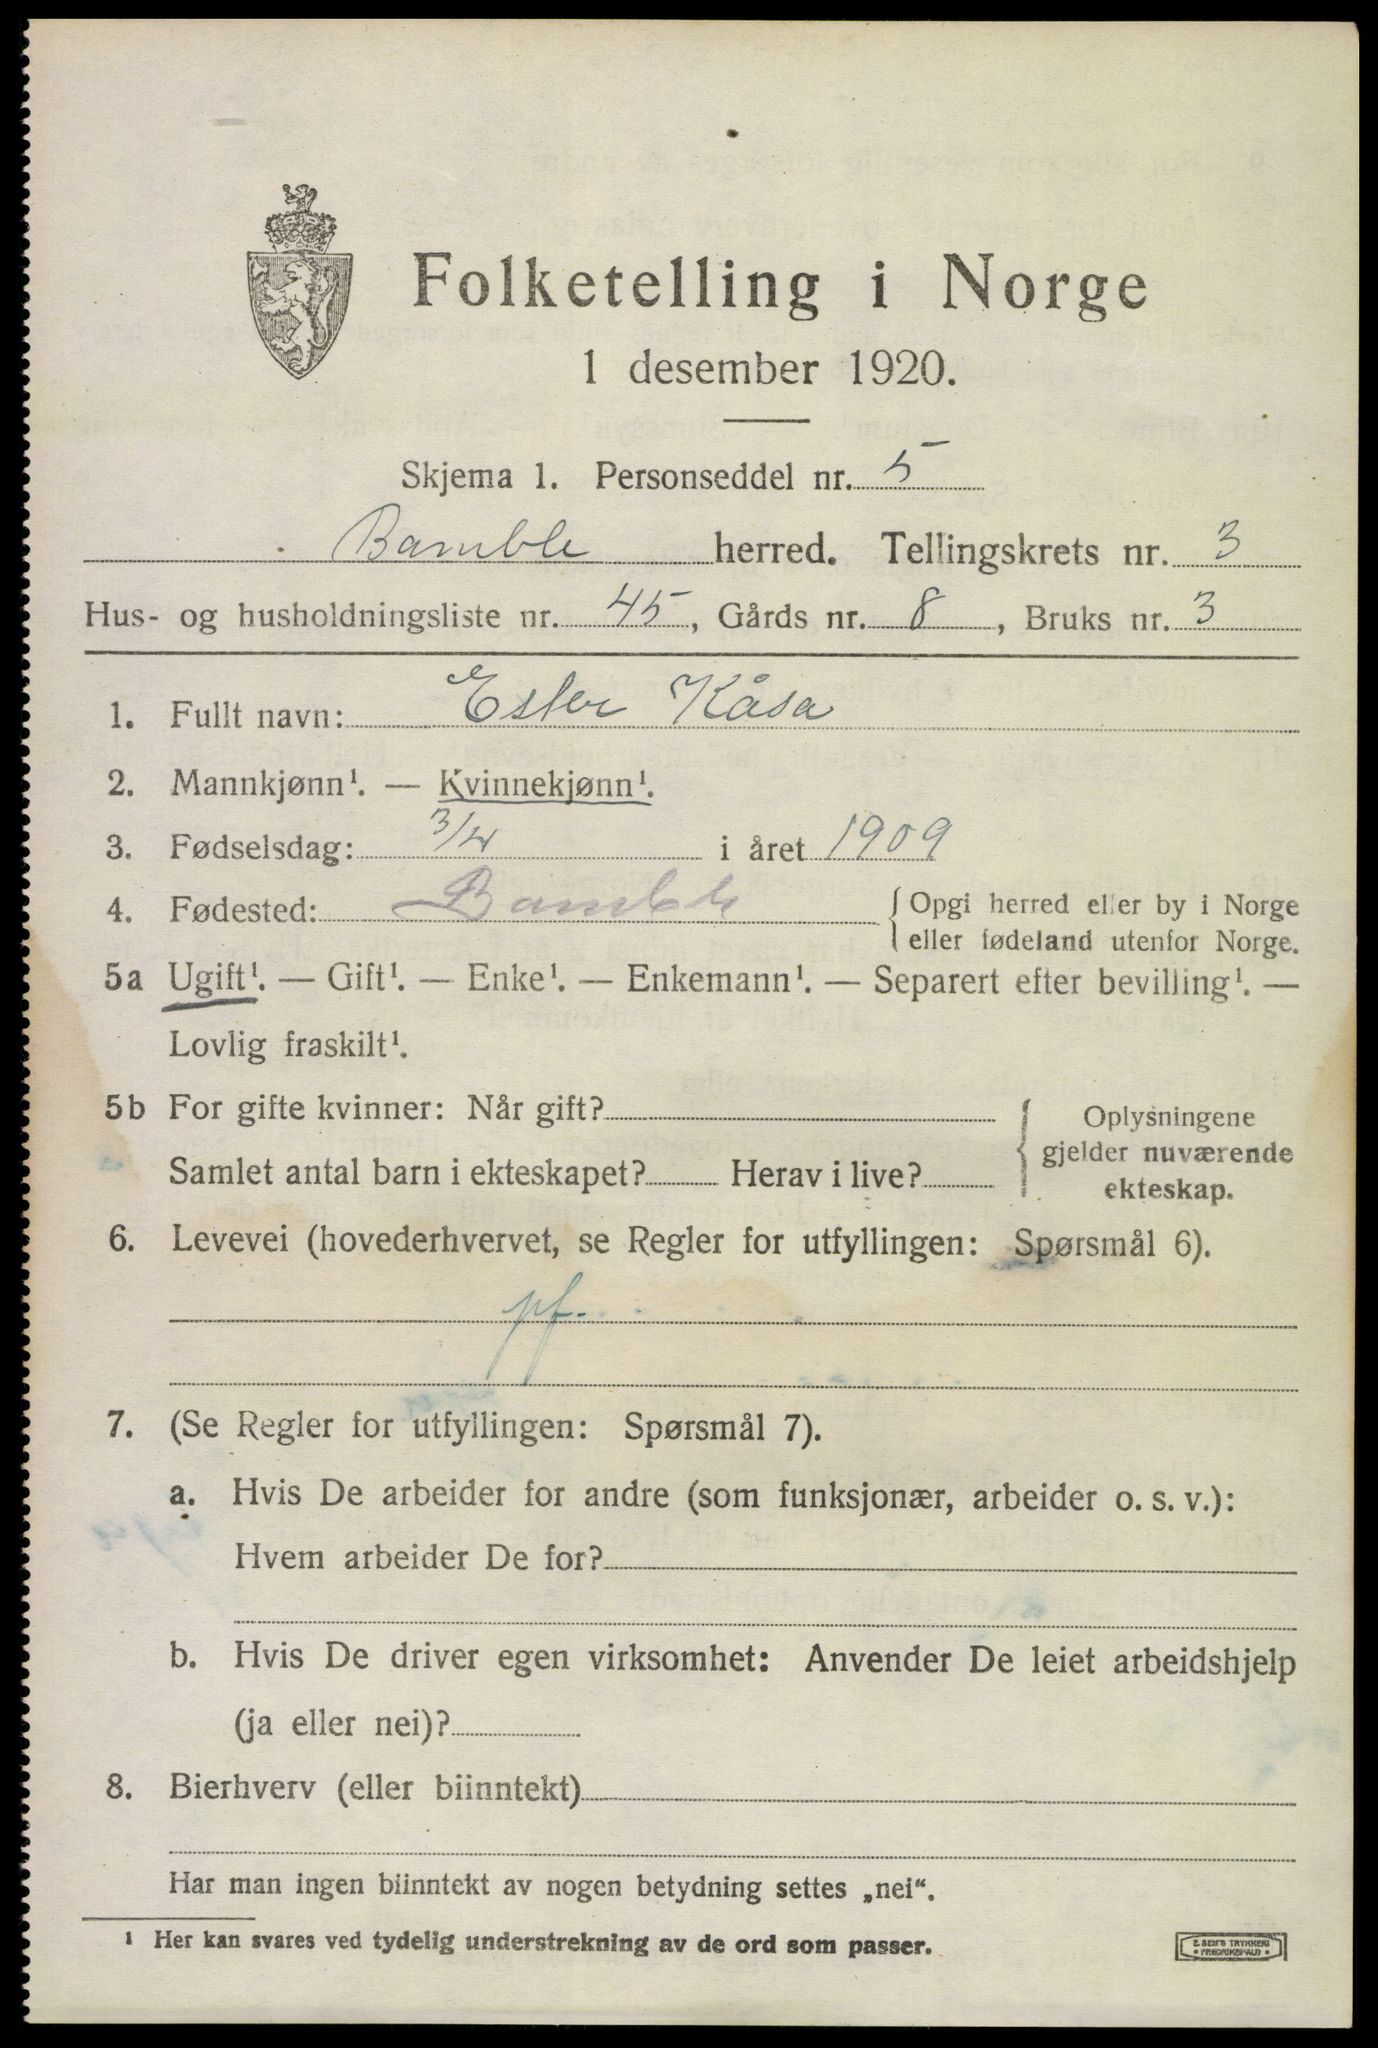 Folketelling i Norge
1 desember 1920.
Skjema 1. Personseddel nr. 5
Bamble herred. Tellingskrets nr. 3
Hus- og husholdningsliste nr. 45, Gårds nr. 8, Bruks nr. 3
1. Fullt navn: Ester Kåsa
2. Mannkjønn¹. — Kvinnekjønn¹.
3. Fødselsdag: 3/4 i året 1909
4. Fødested: Bamble { Opgi herred eller by i Norge
eller fødeland utenfor Norge.
5a Ugift¹. — Gift¹. — Enke¹. — Enkemann¹. — Separert efter bevilling¹. —
Lovlig fraskilt¹.
5b For gifte kvinner: Når gift? { Oplysningene
gjelder nuværende
Samlet antal barn i ekteskapet? Herav i live? ekteskap.
6. Levevei (hovederhvervet, se Regler for utfyllingen: Spørsmål 6).
pf.
7. (Se Regler for utfyllingen: Spørsmål 7).
a. Hvis De arbeider for andre (som funksjonær, arbeider o. s. v.):
Hvem arbeider De for?
b. Hvis De driver egen virksomhet: Anvender De leiet arbeidshjelp
(ja eller nei)?
8. Bierhverv (eller biinntekt)
Har man ingen biinntekt av nogen betydning settes „nei“.
¹ Her kan svares ved tydelig understrekning av de ord som passer.
E. SEM'S TRYKKERI
• FREDRIKSHALD •